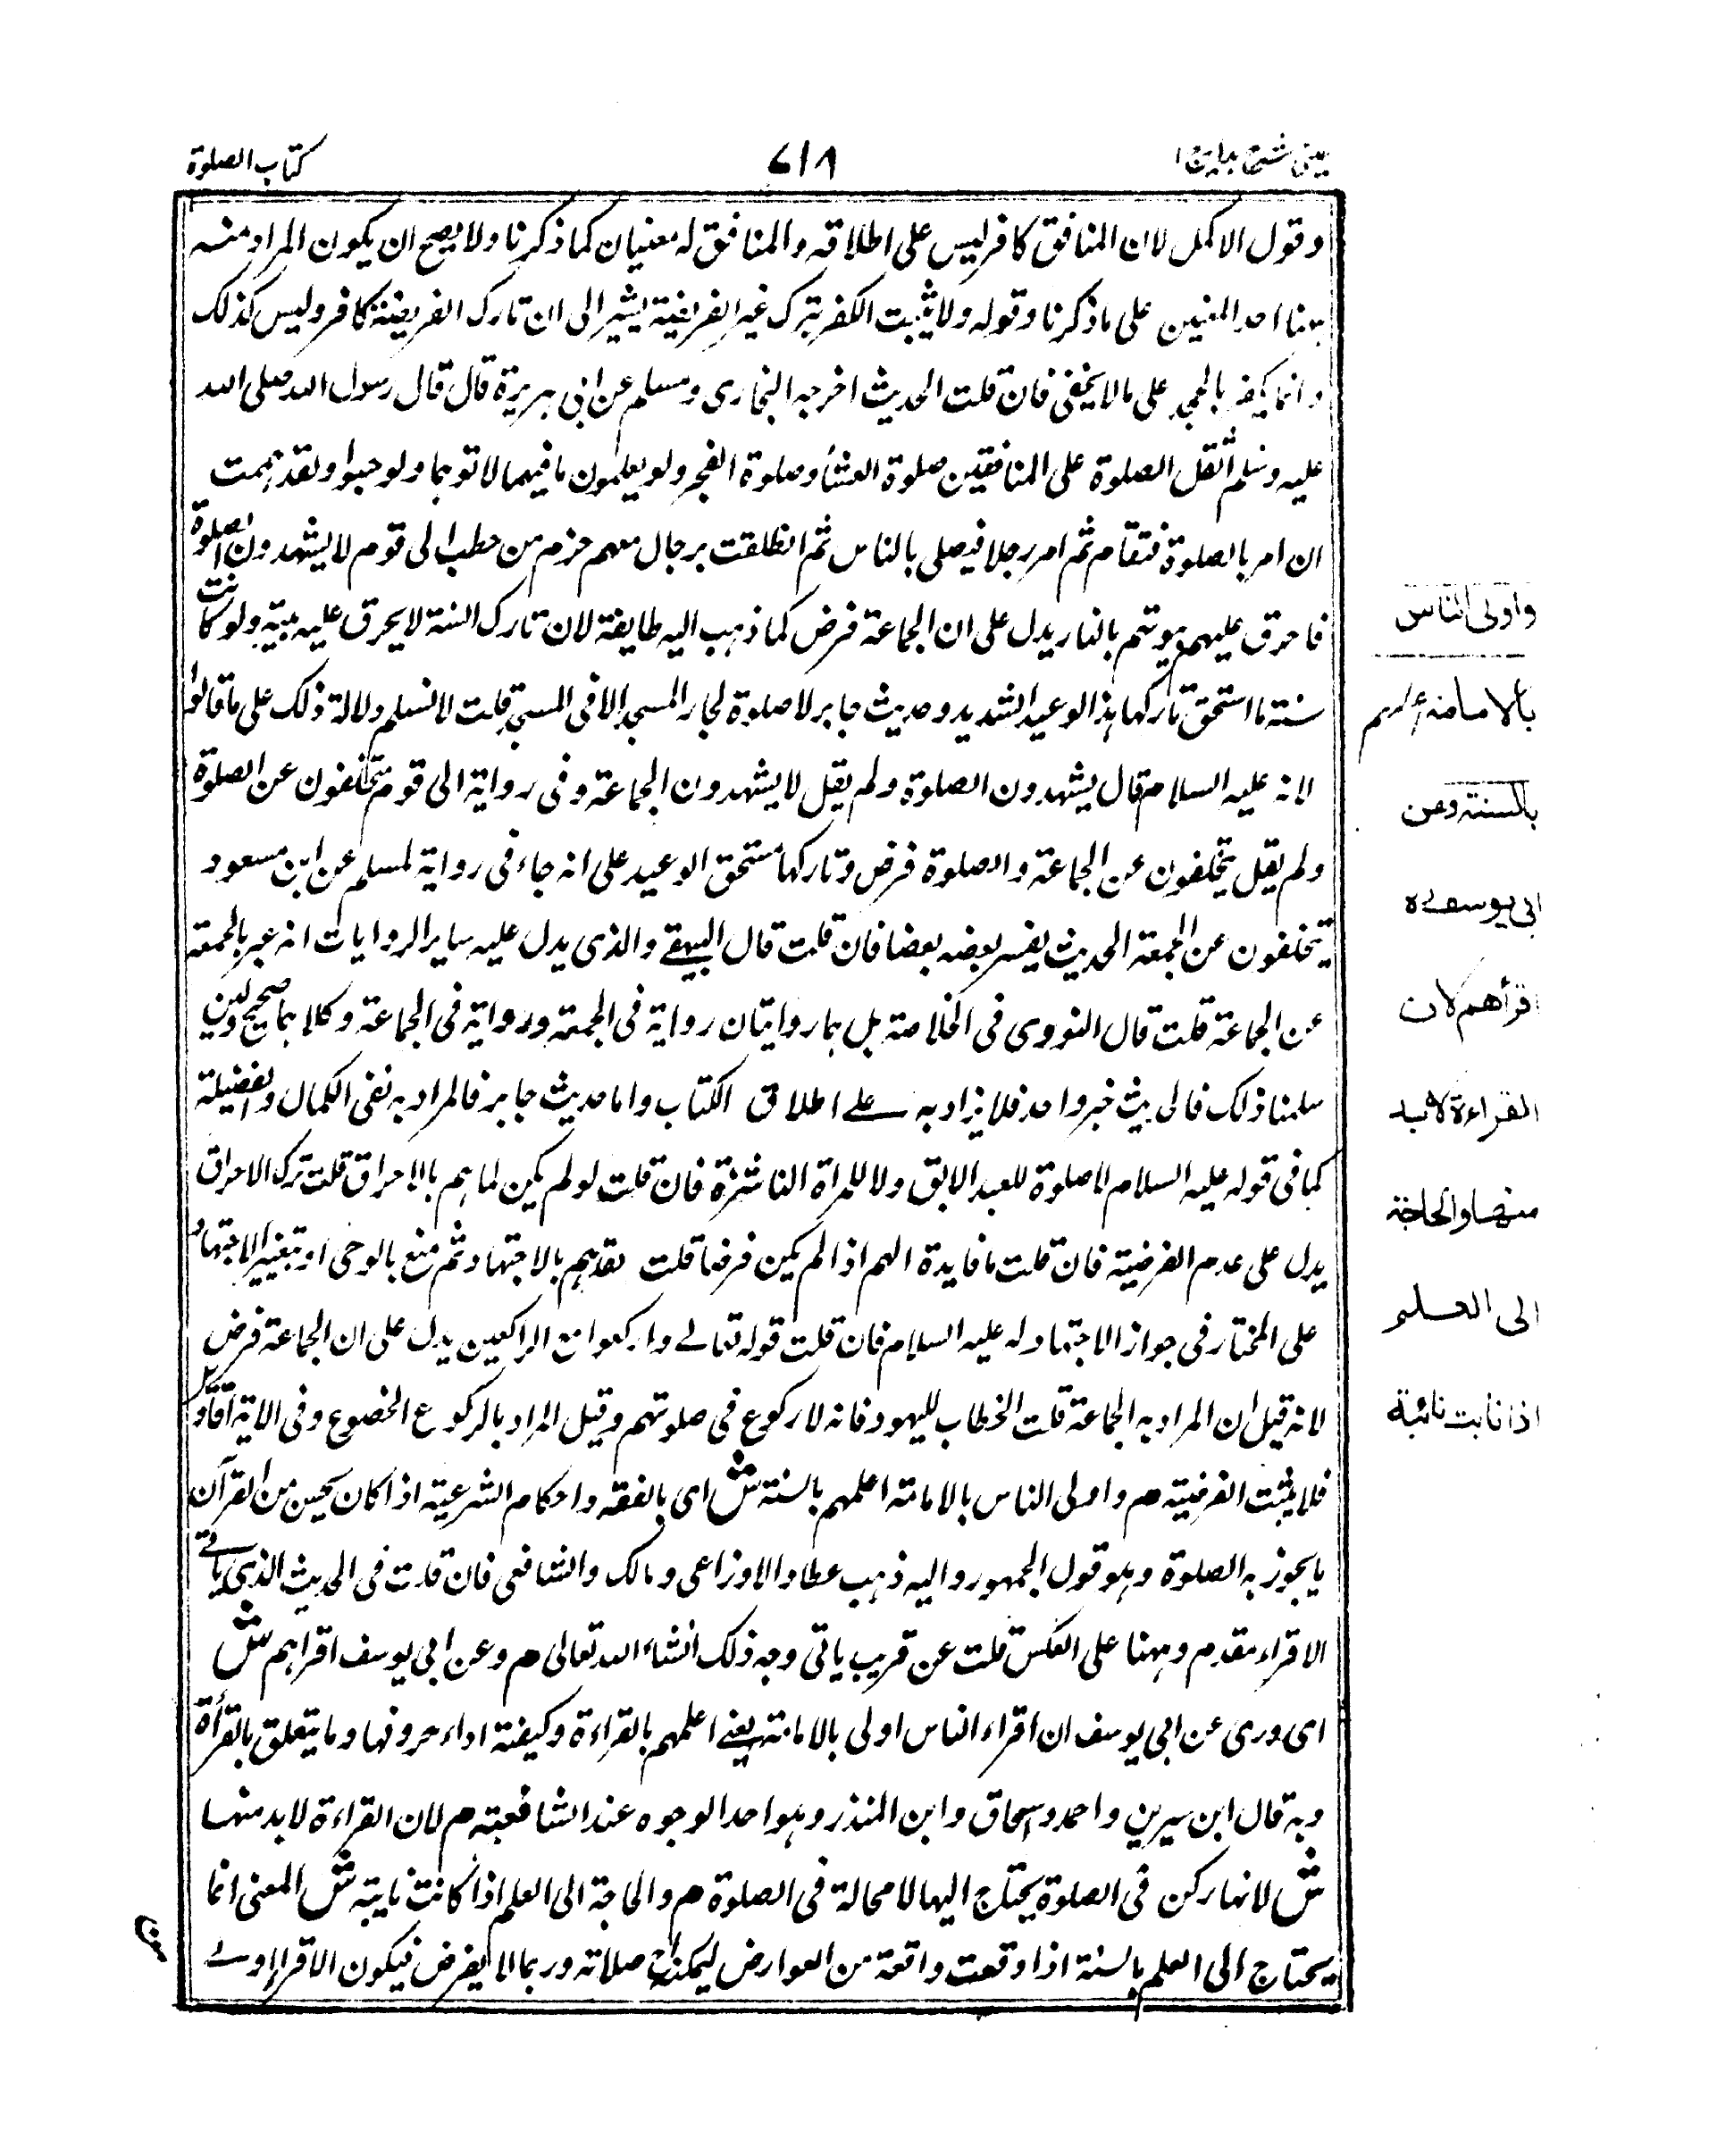 عینی شرح ہدایہ ج ۱
۷۱۸
کتاب الصلوة
وقول الاکمل لان المنافق کافر لیس علی اطلاقه والمنافق له معنیان کما ذکرنا ولا یصح ان یکون المراد منه
ههنا احد المعنیین علی ما ذکرنا وقوله ولا یثبت الکفر بترک غیر الفریضة یشیر الی ان تارک الفریضة کافر ولیس کذلک
وانما یکفر بالجحد علی ما لا یخفی فان قلت الحدیث اخرجه البخاری ومسلم عن ابی هریرة قال قال رسول الله صلی الله
علیه وسلم اثقل الصلوة علی المنافقین صلوة العشاء وصلوة الفجر ولو یعلمون ما فیهما لاتوهما ولو حبوا ولقد هممت
ان امر بالصلوة فتقام ثم امر رجلا فیصلی بالناس ثم انطلقت برجال معهم حزم من حطب الی قوم لا یشهدون الصلوة
فاحرق علیهم بیوتهم بالنار یدل علی ان الجماعة فرض کما ذهب الیه طایفة لان تارک السنة لا یحرق علیه بیته ولو کانت
سنة ما استحق تارکها هذا الوعید الشدید وحدیث جابر لا صلوة لجار المسجد الا فی المسجد قلت لا نسلم دلالة ذلک علی ما قالوا
لانه علیه السلام قال یشهدون الصلوة ولم یقل لا یشهدون الجماعة وفی روایة الی قوم یتخلفون عن الصلوة
ولم یقل یتخلفون عن الجماعة والصلوة فرض وتارکها مستحق الوعید علی انه جاء فی روایة لمسلم عن ابن مسعود
یتخلفون عن الجمعة الحدیث یفسر بعضه بعضا فان قلت قال البیهقے والذی یدل علیه سایر الروایات انه عبر بالجمعة
عن الجماعة قلت قال النووی فی الخلاصة بل هما روایتان روایة فی الجمعة وروایة فی الجماعة وکلاهما صحیح ولئن
سلمنا ذلک فالحدیث خبر واحد فلا یزاد به علے اطلاق الکتاب واما حدیث جابر فالمراد به نفی الکمال والفضیلة
کما فی قوله علیه السلام لا صلوة للعبد الابق ولا للمراة الناشزة فان قلت لو لم یکن لما هم بالاحراق قلت ترک الاحراق
یدل علی عدم الفرضیة فان قلت ما فایدة الهم اذا لم یکن فرضا قلت تقدیم بالاجتهاد ثم منع بالوحی او تبغیر الاجتهاد
علی المختار فی جواز الاجتهاد له علیه السلام فان قلت قوله تعالے وارکعوا مع الراکعین یدل علی ان الجماعة فرض
لانه قیل ان المراد به الجماعة قلت الخطاب للیهود فانه لا رکوع فی صلوتهم وقیل المراد بالرکوع الخضوع وفی الایة اقاویل
فلا یثبت الفرضیة م واولی الناس بالامامة اعلمهم بالسنة ش ای بالفقه واحکام الشرعیة اذا کان یحسن من القرآن
ما یجوز به الصلوة وهو قول الجمهور والیه ذهب عطا والاوزاعی ومالک والشافعی فان قلت فی الحدیث الذی یاتے
الاقراء مقدم وههنا علی العکس قلت عن قریب یاتی وجه ذلک انشاء الله تعالی م وعن ابی یوسف اقراهم ش
ای وروی عن ابی یوسف ان اقراء الناس اولی بالامامة یعنے اعلمهم بالقراءة وکیفیة اداء حروفها وما یتعلق بالقراة
وبه قال ابن سیرین واحمد واسحاق وابن المنذر وهو احد الوجوه عند الشافعیة م لان القراءة لا بد منها
ش لانها رکن فی الصلوة یحتاج الیها لا محالة فی الصلوة م والحاجة الی العلم اذا کانت نایبة ش المعنی انما
یحتاج الی العلم بالسنة اذا وقعت واقعة من العوارض لیمکنه صلاته وربما لا یفرض فیکون الاقراء اولے
واولی الناس
بالامامة اعلمهم
بالسنة وعن
ابی یوسف رہ
اقرأهم لان
القراءة لابد
منها والحاجة
الی العلم
اذا نابت نائبة